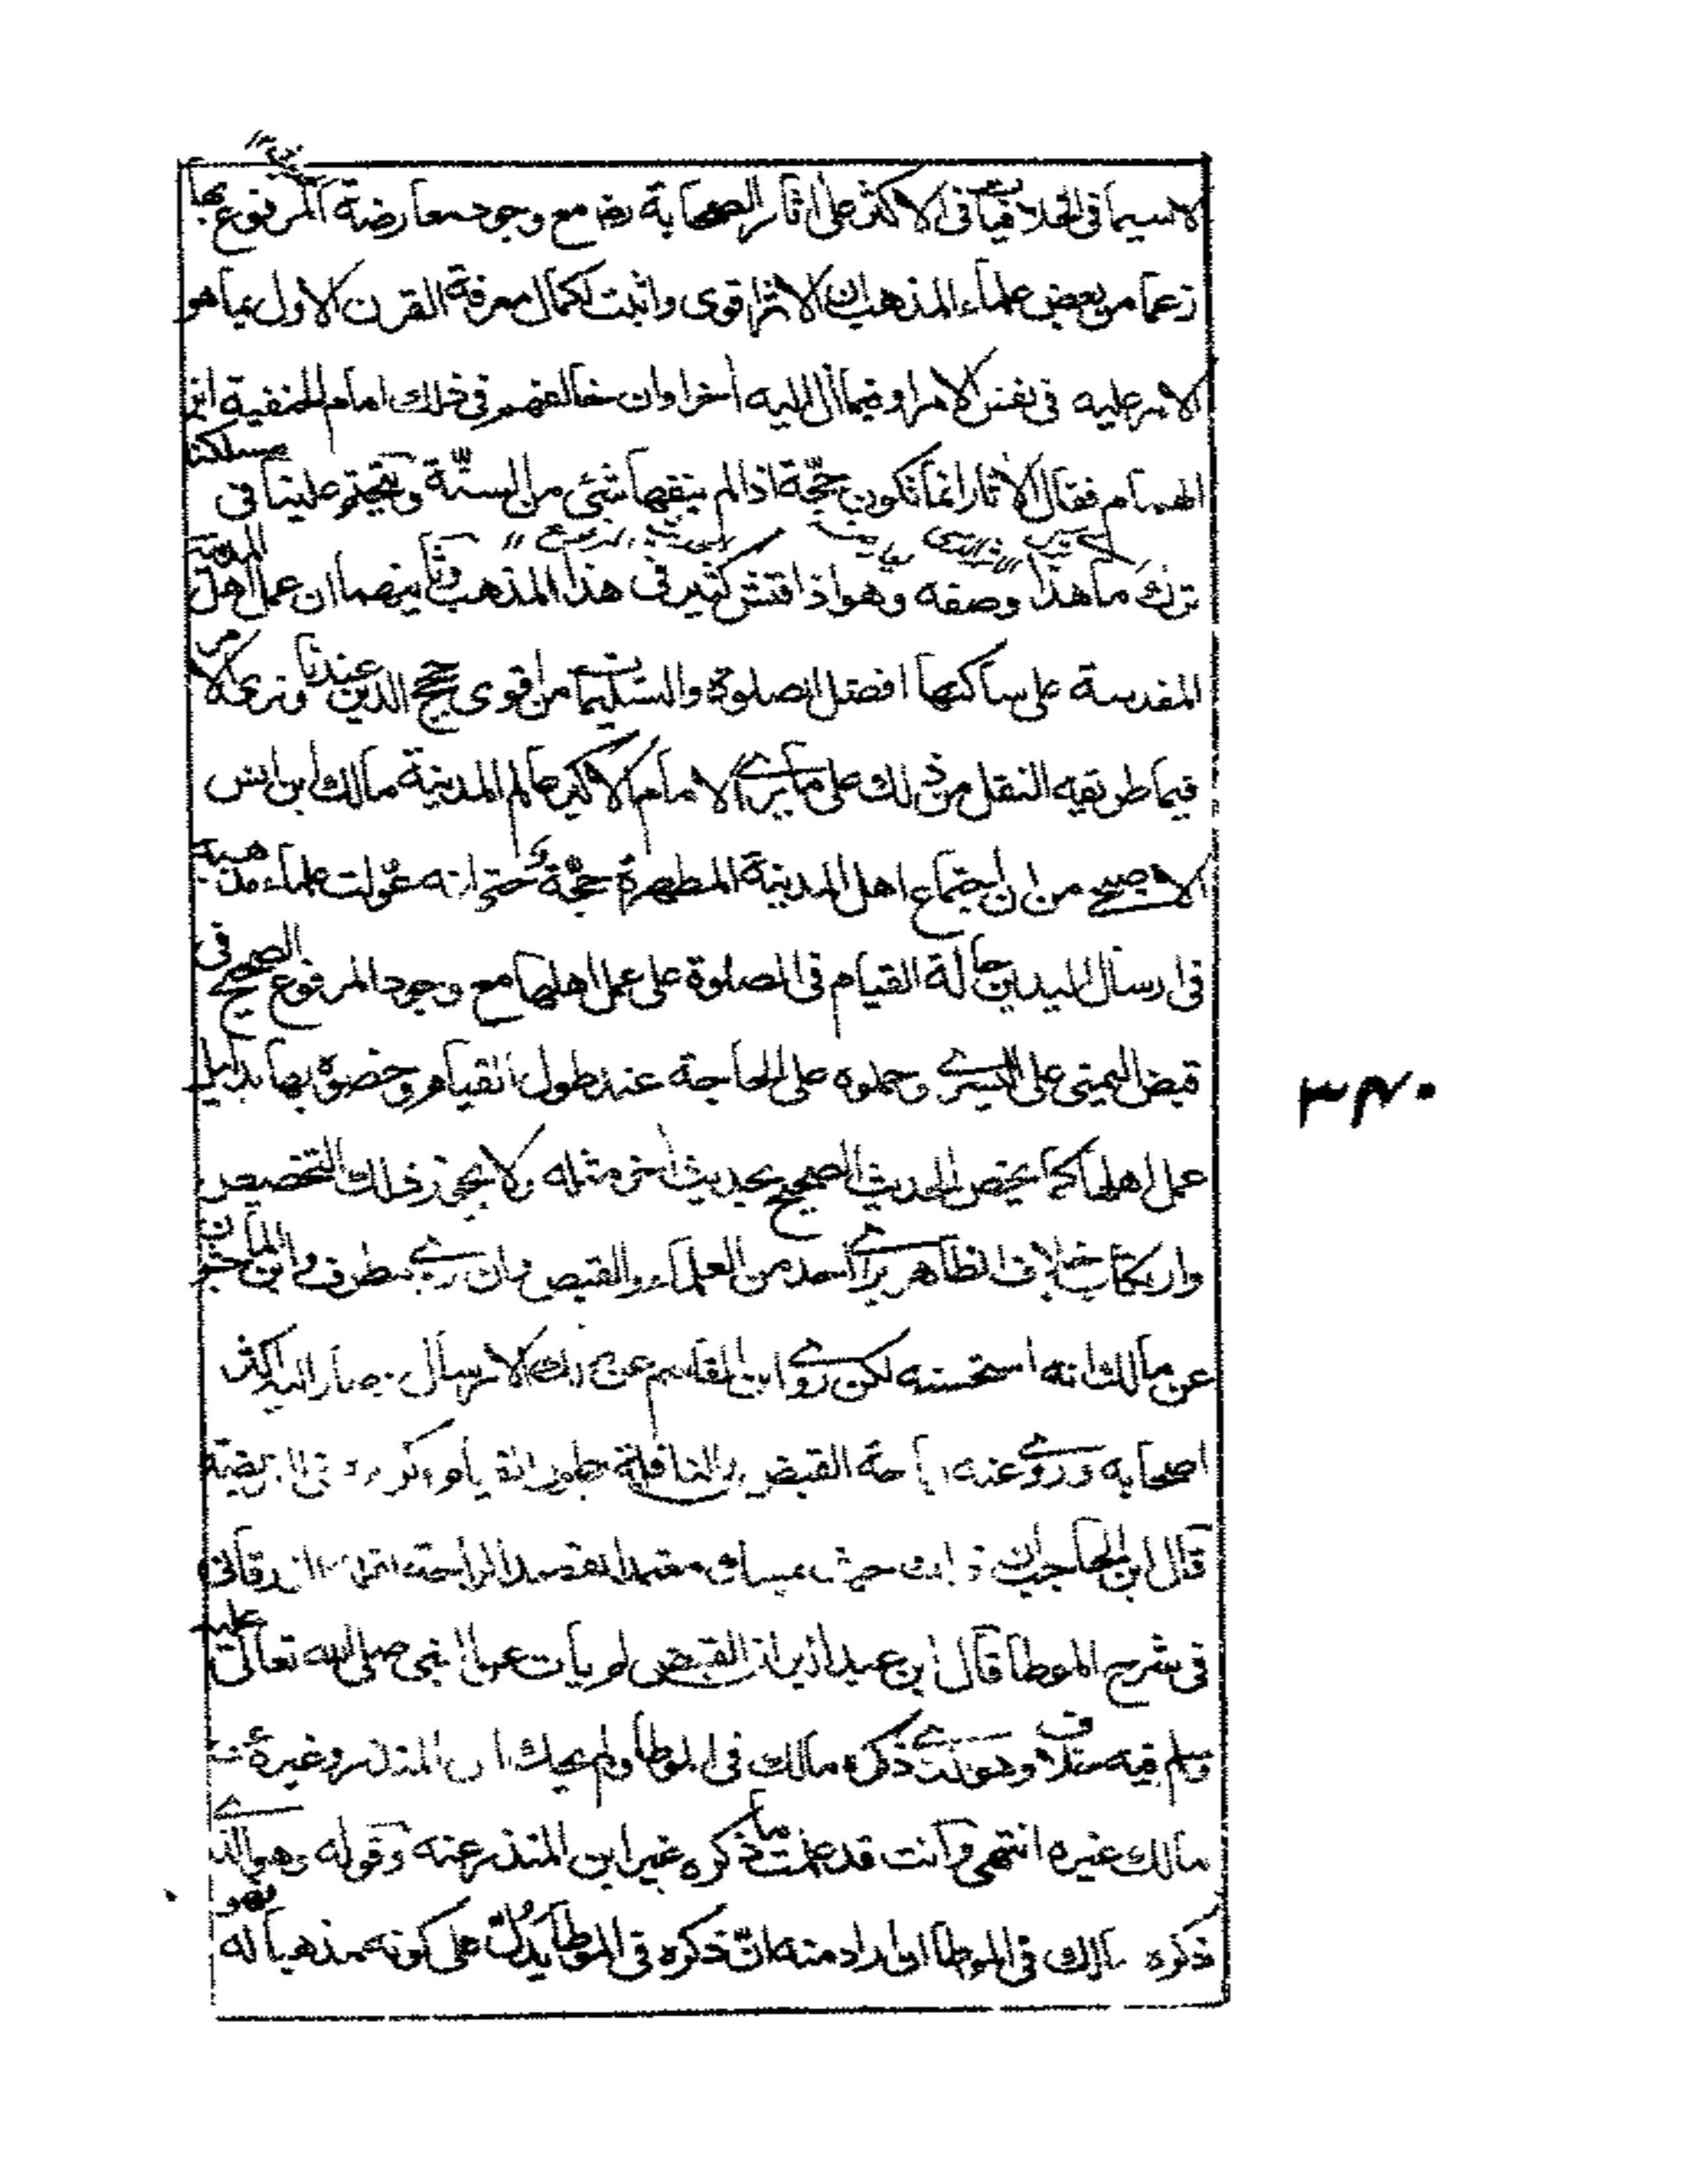 لاسيما فى الخلافيات فى الاكثر على اثار الصحابة رضـ مع وجود معارضة المرفوع بها
زعما من بعض علماء المذهب ان الاثر اقوى واثبت لكمال معرفة القرن الاول بما هو
الامر عليه فى نفس الامر او فيما ال اليه اخرا وان خالفهم فى ذلك امام الحنفية ابن
الهمام فقال الاثار انما تكون حجّة اذا لم ينفها شئ من السنّة و علينا فى مسلكنا
ترك ما هذا وصفه وهو اذا فتش كثير فى هذا المذهب وثانيهما ان عمل اهل المدينة
المقدسة على ساكنها افضل الصلوة والتسليمات من اقوى حجج الدين عندنا ونرى الامر
فيما طريقه النقل من ذلك على ما يرى الامام الاكبر عالم المدينة مالك ابن انس
الاصبحى من ان اجتماع اهل المدينة المطهرة حجّة وحتى انه عوّلت علماء مذهبه
فى ارسال اليدين حالة القيام فى الصلوة على عمل اهلها مع وجود المرفوع الصحيح فى
قبض اليمنى على اليسرى وحملوه على الحاجة عند طول القيام وخصوه بها بدليل
عمل اهلها كما يخص الحديث الصحيح بحديث اخر مثله ولا يجوز ذلك التخصيص
وارتكاب خلاف الظاهر برأ احد من العلماء والقبض وان روى مطرف وابن الماجشون
عن مالك انه استحسنه لكن روى ابن القاسم عن مالك الارسال وصار اليه اكثر
اصحابه وروى عنه اباحة القبض فى النافلة لطول القيام وكرهه فى الفريضة
قال ابن الحاجب ان ذلك حيث تمسك معتمدا لقصد الراحة انتهى الزرقانى
فى شرح الموطا قال ابن عبد البر ان القبض لم يأت عن النبى صلى الله تعالى عليه
وسلم فيه خلاف وهو الذى ذكره مالك فى الموطا ولم يحك ابن المنذر وغيره عن
مالك غيره انتهى وانت قد علمت ما ذكره غير ابن المنذر عنه وقوله وهو الذى
ذكره مالك فى الموطا ان اراد منه ان ذكره فى الموطا يدل على كونه مذهبا له فهو
٣٤٠